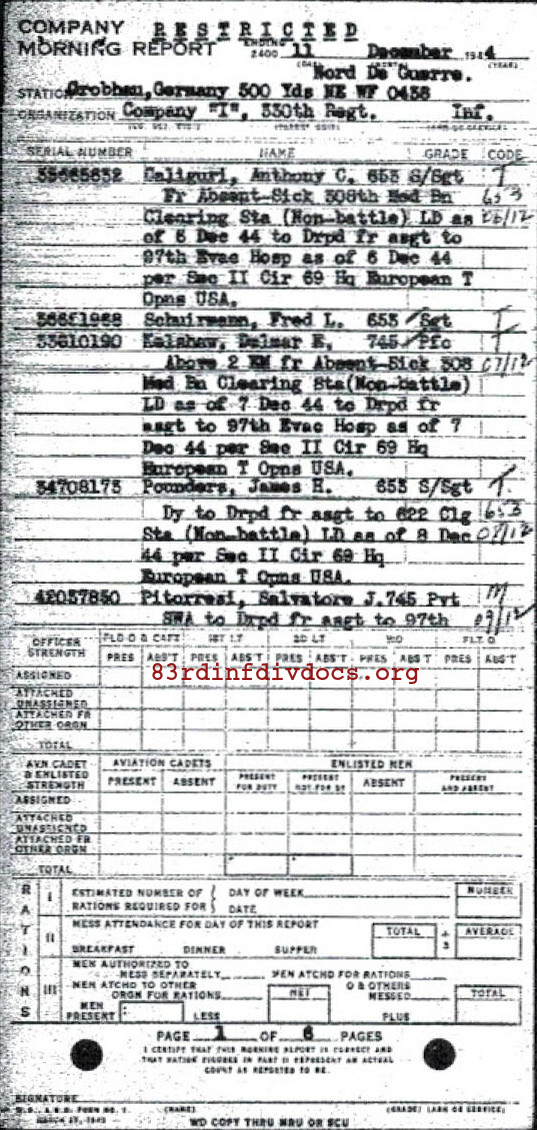 COMPANY
MORNING REPORT
RESTRICTED
ENDING
2400 11 December 1944
(DAY) (MONTH) (YEAR)
Nord De Guerre.
STATION Grobhau, Germany 500 Yds NE WF 0438
ORGANIZATION Company "I", 330th Regt. Inf.
SERIAL NUMBER NAME GRADE CODE
Caliguri, Anthony C. 653 S/Sgt T
Fr Absent-Sick 308th Med Bn 653
Clearing Sta (Non-battle) LD as 06/12
of 6 Dec 44 to Drpd fr asgt to
97th Evac Hosp as of 6 Dec 44
per Sec II Cir 69 Hq European T
Opns USA.
Schuirmann, Fred L. 653 Sgt T
33610190 Kelshaw, Delmar E. 745 Pfc T
Above 2 EM fr Absent-Sick 308 07/12
Med Bn Clearing Sta(Non-battle)
LD as of 7 Dec 44 to Drpd fr
asgt to 97th Evac Hosp as of 7
Dec 44 per Sec II Cir 69 Hq
European T Opns USA.
34708173 Pounders, James H. 653 S/Sgt T
Dy to Drpd fr asgt to 622 Clg 653
Sta (Non-battle) LD as of 8 Dec 08/12
44 per Sec II Cir 69 Hq
European T Opns USA.
42037850 Pitorresi, Salvatore J.745 Pvt M
SWA to Drpd fr asgt to 97th 09/12
OFFICER STRENGTH FLD O & CAPT 1ST LT 2D LT WO FLT O
PRES ABS'T PRES ABS'T PRES ABS'T PRES ABS'T PRES ABS'T
83rdinfdivdocs.org
ASSIGNED
ATTACHED UNASSIGNED
ATTACHED FR OTHER ORGN
TOTAL
AVN CADET & ENLISTED STRENGTH AVIATION CADETS ENLISTED MEN
PRESENT ABSENT PRESENT FOR DUTY PRESENT NOT FOR DY ABSENT PRESENT AND ABSENT
ASSIGNED
ATTACHED UNASSIGNED
ATTACHED FR OTHER ORGN
TOTAL
RATIONS
I ESTIMATED NUMBER OF RATIONS REQUIRED FOR DAY OF WEEK DATE NUMBER
II MESS ATTENDANCE FOR DAY OF THIS REPORT TOTAL ÷ 3 AVERAGE
BREAKFAST DINNER SUPPER
III MEN AUTHORIZED TO MESS SEPARATELY MEN ATCHD FOR RATIONS
MEN ATCHD TO OTHER ORGN FOR RATIONS NET O & OTHERS MESSED TOTAL
MEN PRESENT LESS PLUS
PAGE 1 OF 6 PAGES
I CERTIFY THAT THIS MORNING REPORT IS CORRECT AND
THAT RATION FIGURES IN PART II REPRESENT AN ACTUAL
COUNT AS REPORTED TO ME.
SIGNATURE
W.D., A.G.O. FORM NO. 1 (NAME) (GRADE) (ARM OR SERVICE)
WD COPY THRU MRU OR SCU